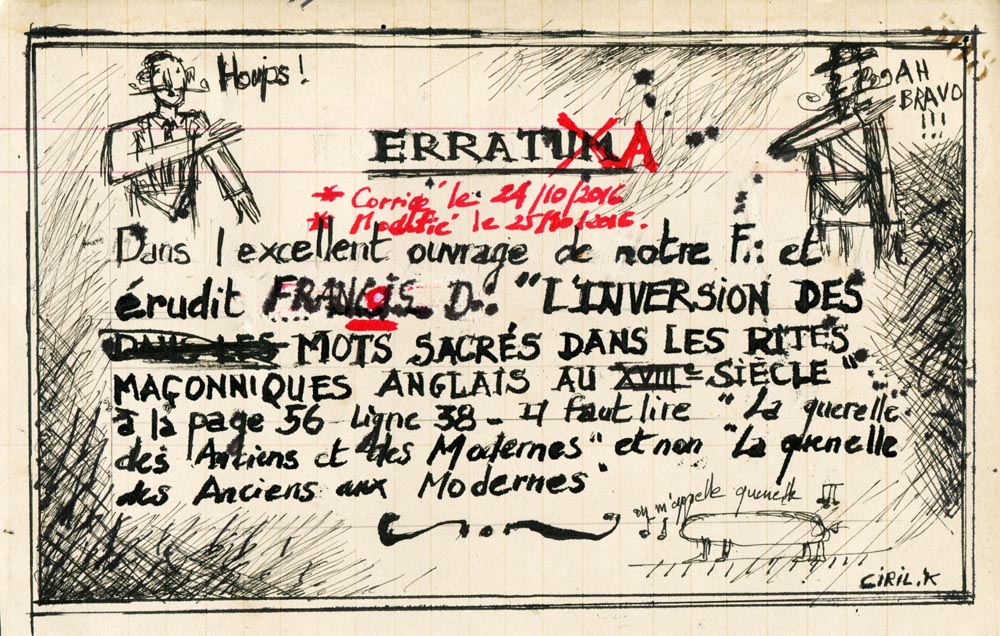 Houps !
AH
BRAVO
!!!
ERRATUM A
* Corrigé le 24/10/2016
* Modifié le 25/10/2016.
Dans l'excellent ouvrage de notre F∴ et
érudit FRANCIS D∴ "L'INVERSION DES
DANS LES MOTS SACRÉS DANS LES RITES
MAÇONNIQUES ANGLAIS AU XVIIIe SIÈCLE"
à la page 56 ligne 38 - il faut lire "La querelle
des Anciens et des Modernes" et non "La quenelle
des Anciens aux Modernes"
on m'appelle quenelle
CIRIL.K